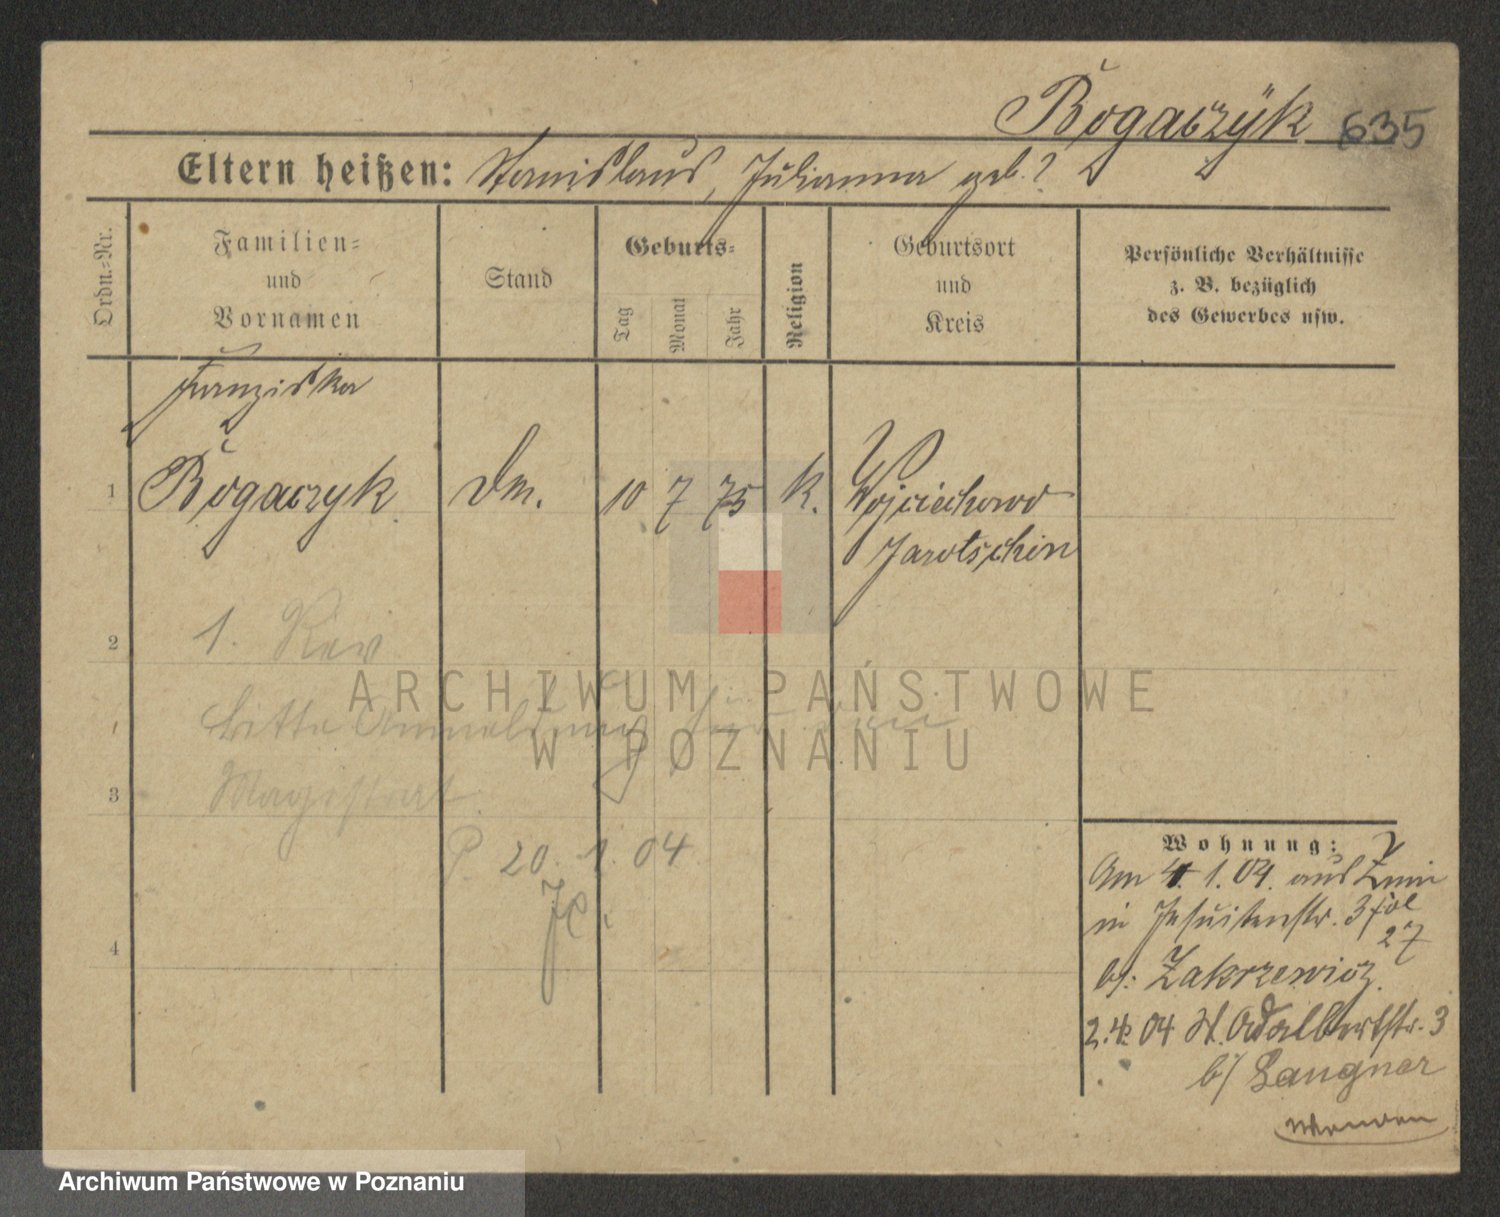 Bogaczÿk 635
Eltern heißen: Stanislaus, Julianna geb. ?
Ordn.=Nr.
Familien=
und
Vornamen
Stand
Geburts=
Tag
Monat
Jahr
Religion
Geburtsort
und
Kreis
Persönliche Verhältnisse
z. B. bezüglich
des Gewerbes usw.
Franziska
1 Bogaczyk Dm. 10 7 75 K. Wojciechowo
Jarotschin
2 1. Rev
bitte Anmeldung
3 Magistrat
P. 20. 1. 04
4
Wohnung:
Am 4. 1. 04. aus Znin
in Jesuitenstr. 3
27
b/: Zakrzewicz.
2.4. 04 St. Adalbertstr. 3
b/ Langner
Wenden
ARCHIWUM PAŃSTWOWE
W POZNANIU
Archiwum Państwowe w Poznaniu